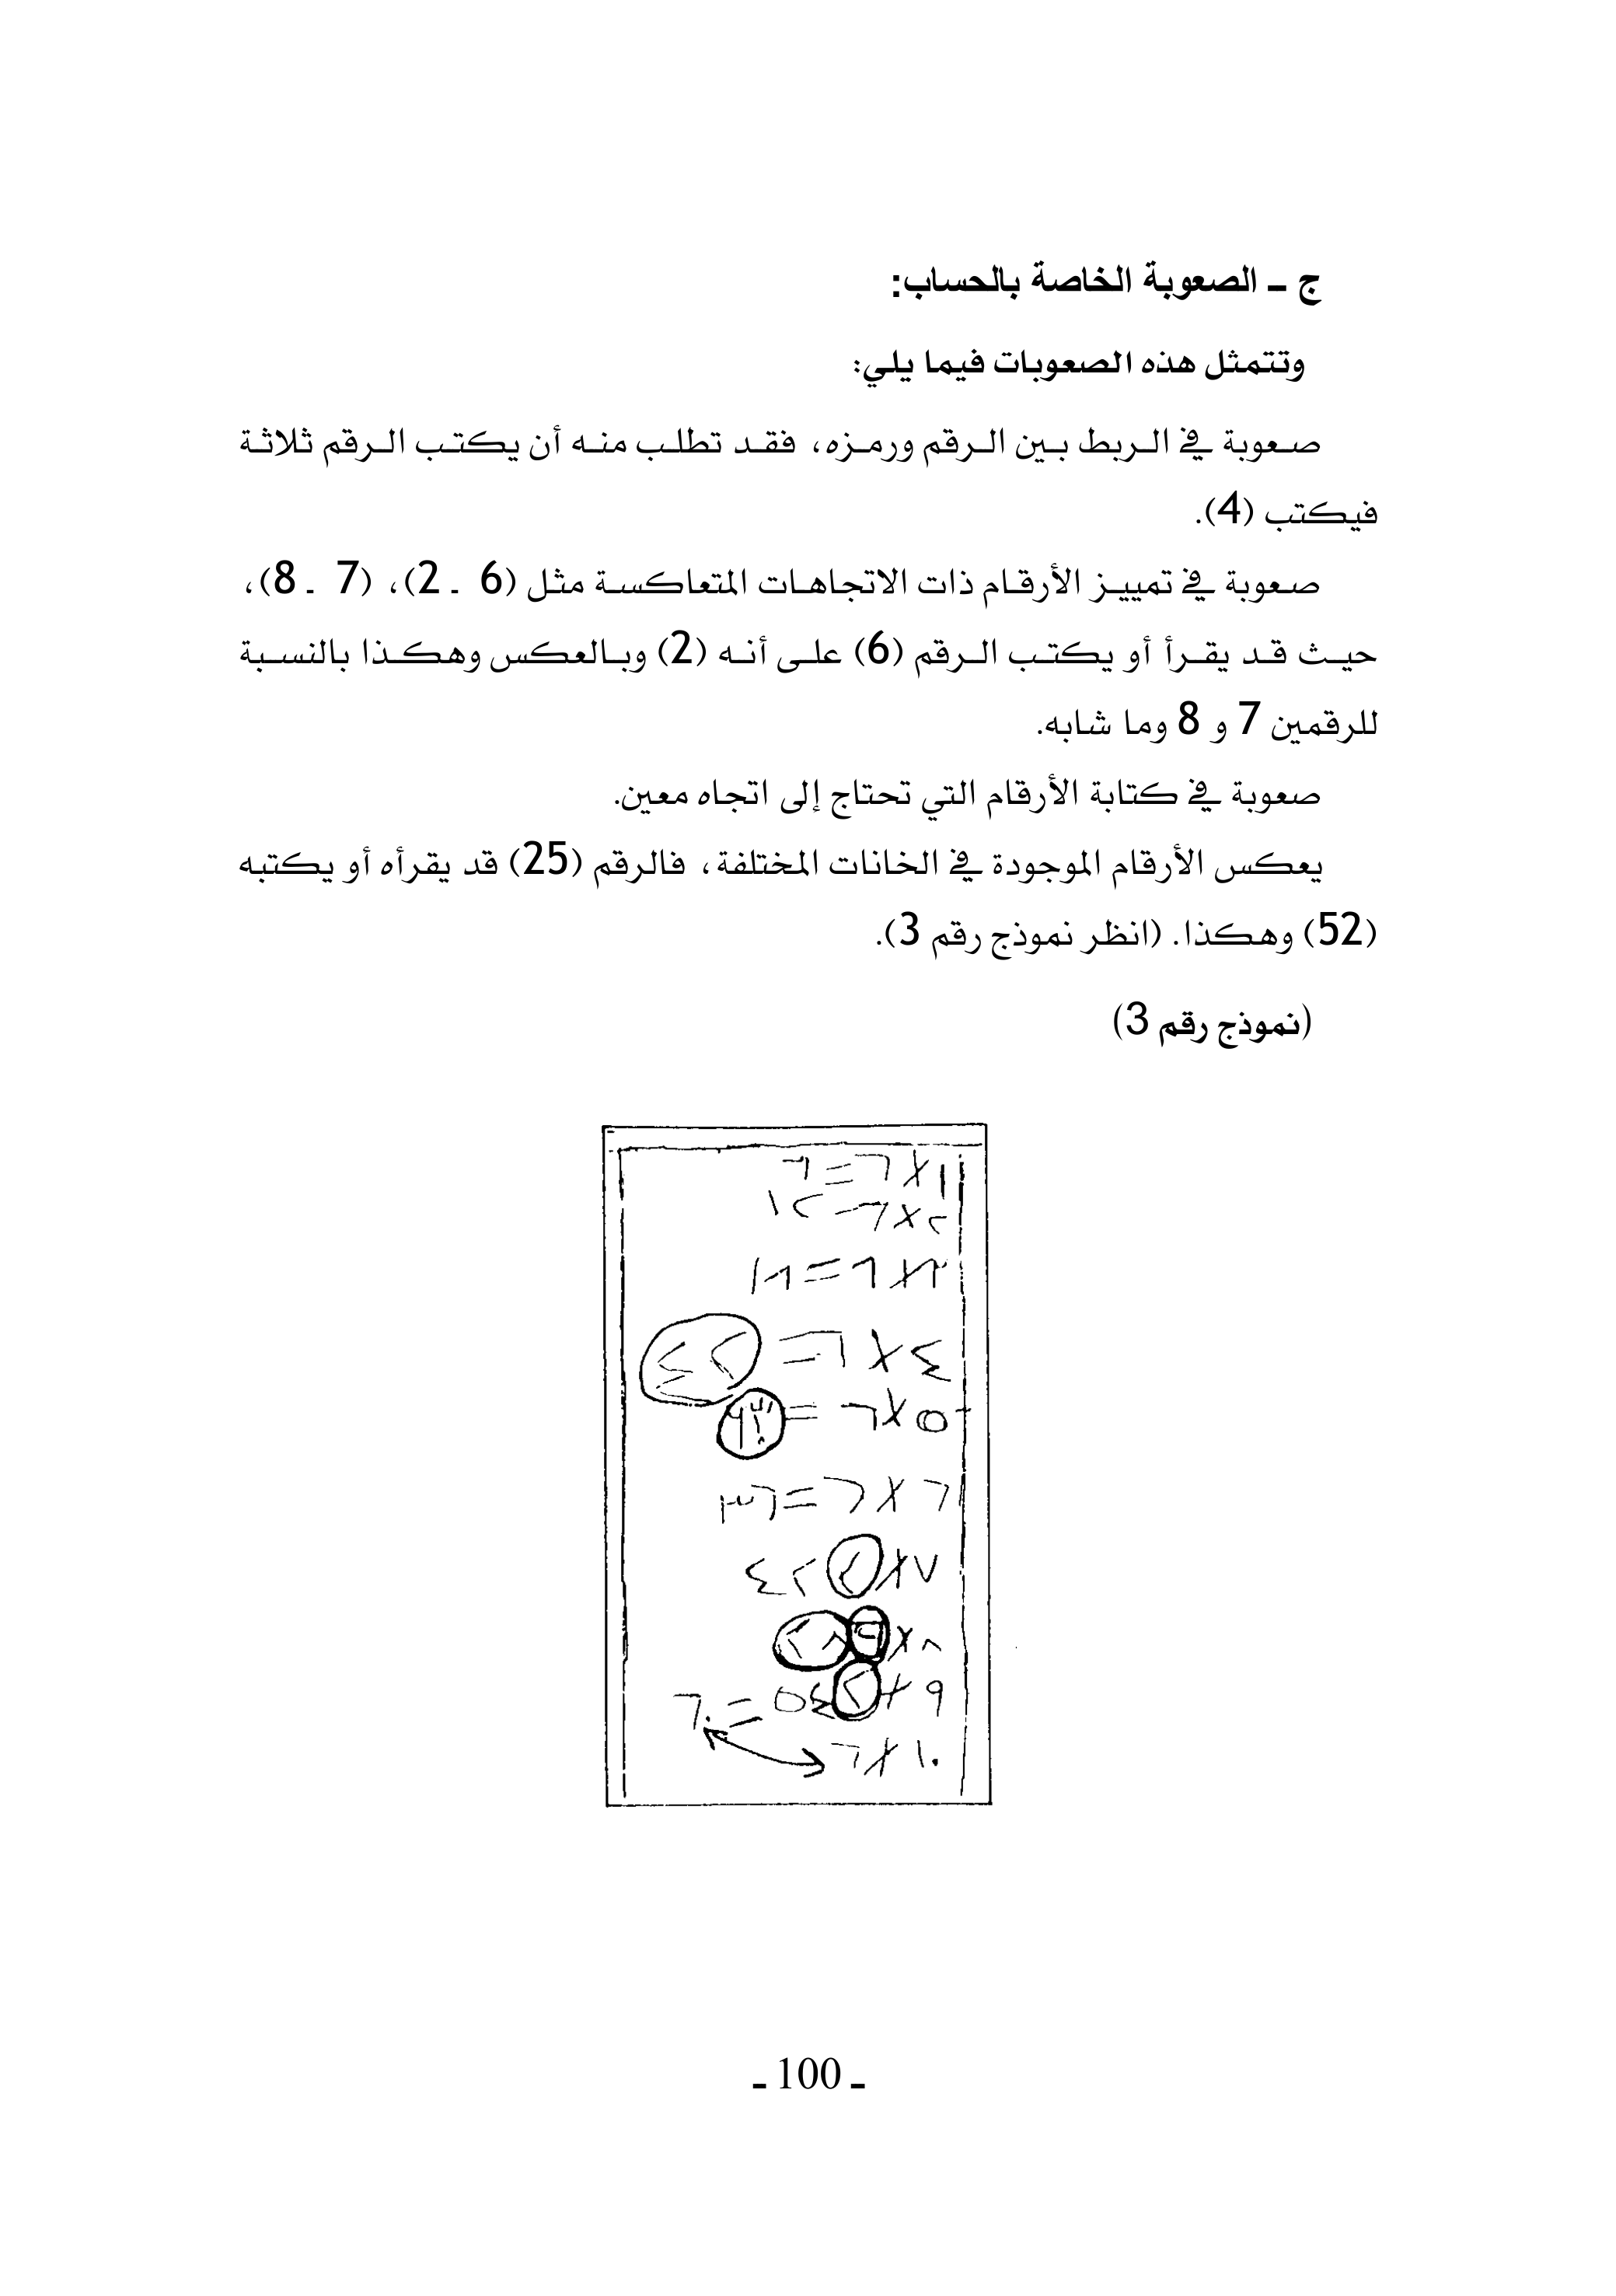 ج – الصعوبة الخاصة بالحساب:
وتتمثل هذه الصعوبات فيما يلي:
صعوبة في الربط بين الرقم ورمزه، فقد تطلب منه أن يكتب الرقم ثلاثة
فيكتب (4).
صعوبة في تمييز الأرقام ذات الاتجاهات المتعاكسة مثل (6 ـ 2)، (7 ـ 8)،
حيث قد يقرأ أو يكتب الرقم (6) على أنه (2) وبالعكس وهكذا بالنسبة
للرقمين 7 و 8 وما شابه.
صعوبة في كتابة الأرقام التي تحتاج إلى اتجاه معين.
يعكس الأرقام الموجودة في الخانات المختلفة، فالرقم (25) قد يقرأه أو يكتبه
(52) وهكذا. (انظر نموذج رقم 3).
(نموذج رقم 3)
ـ 100 ـ